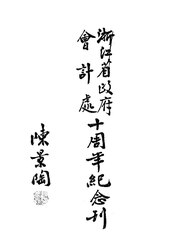 浙江省政府
會計處
十周年紀念刊
陳景陶